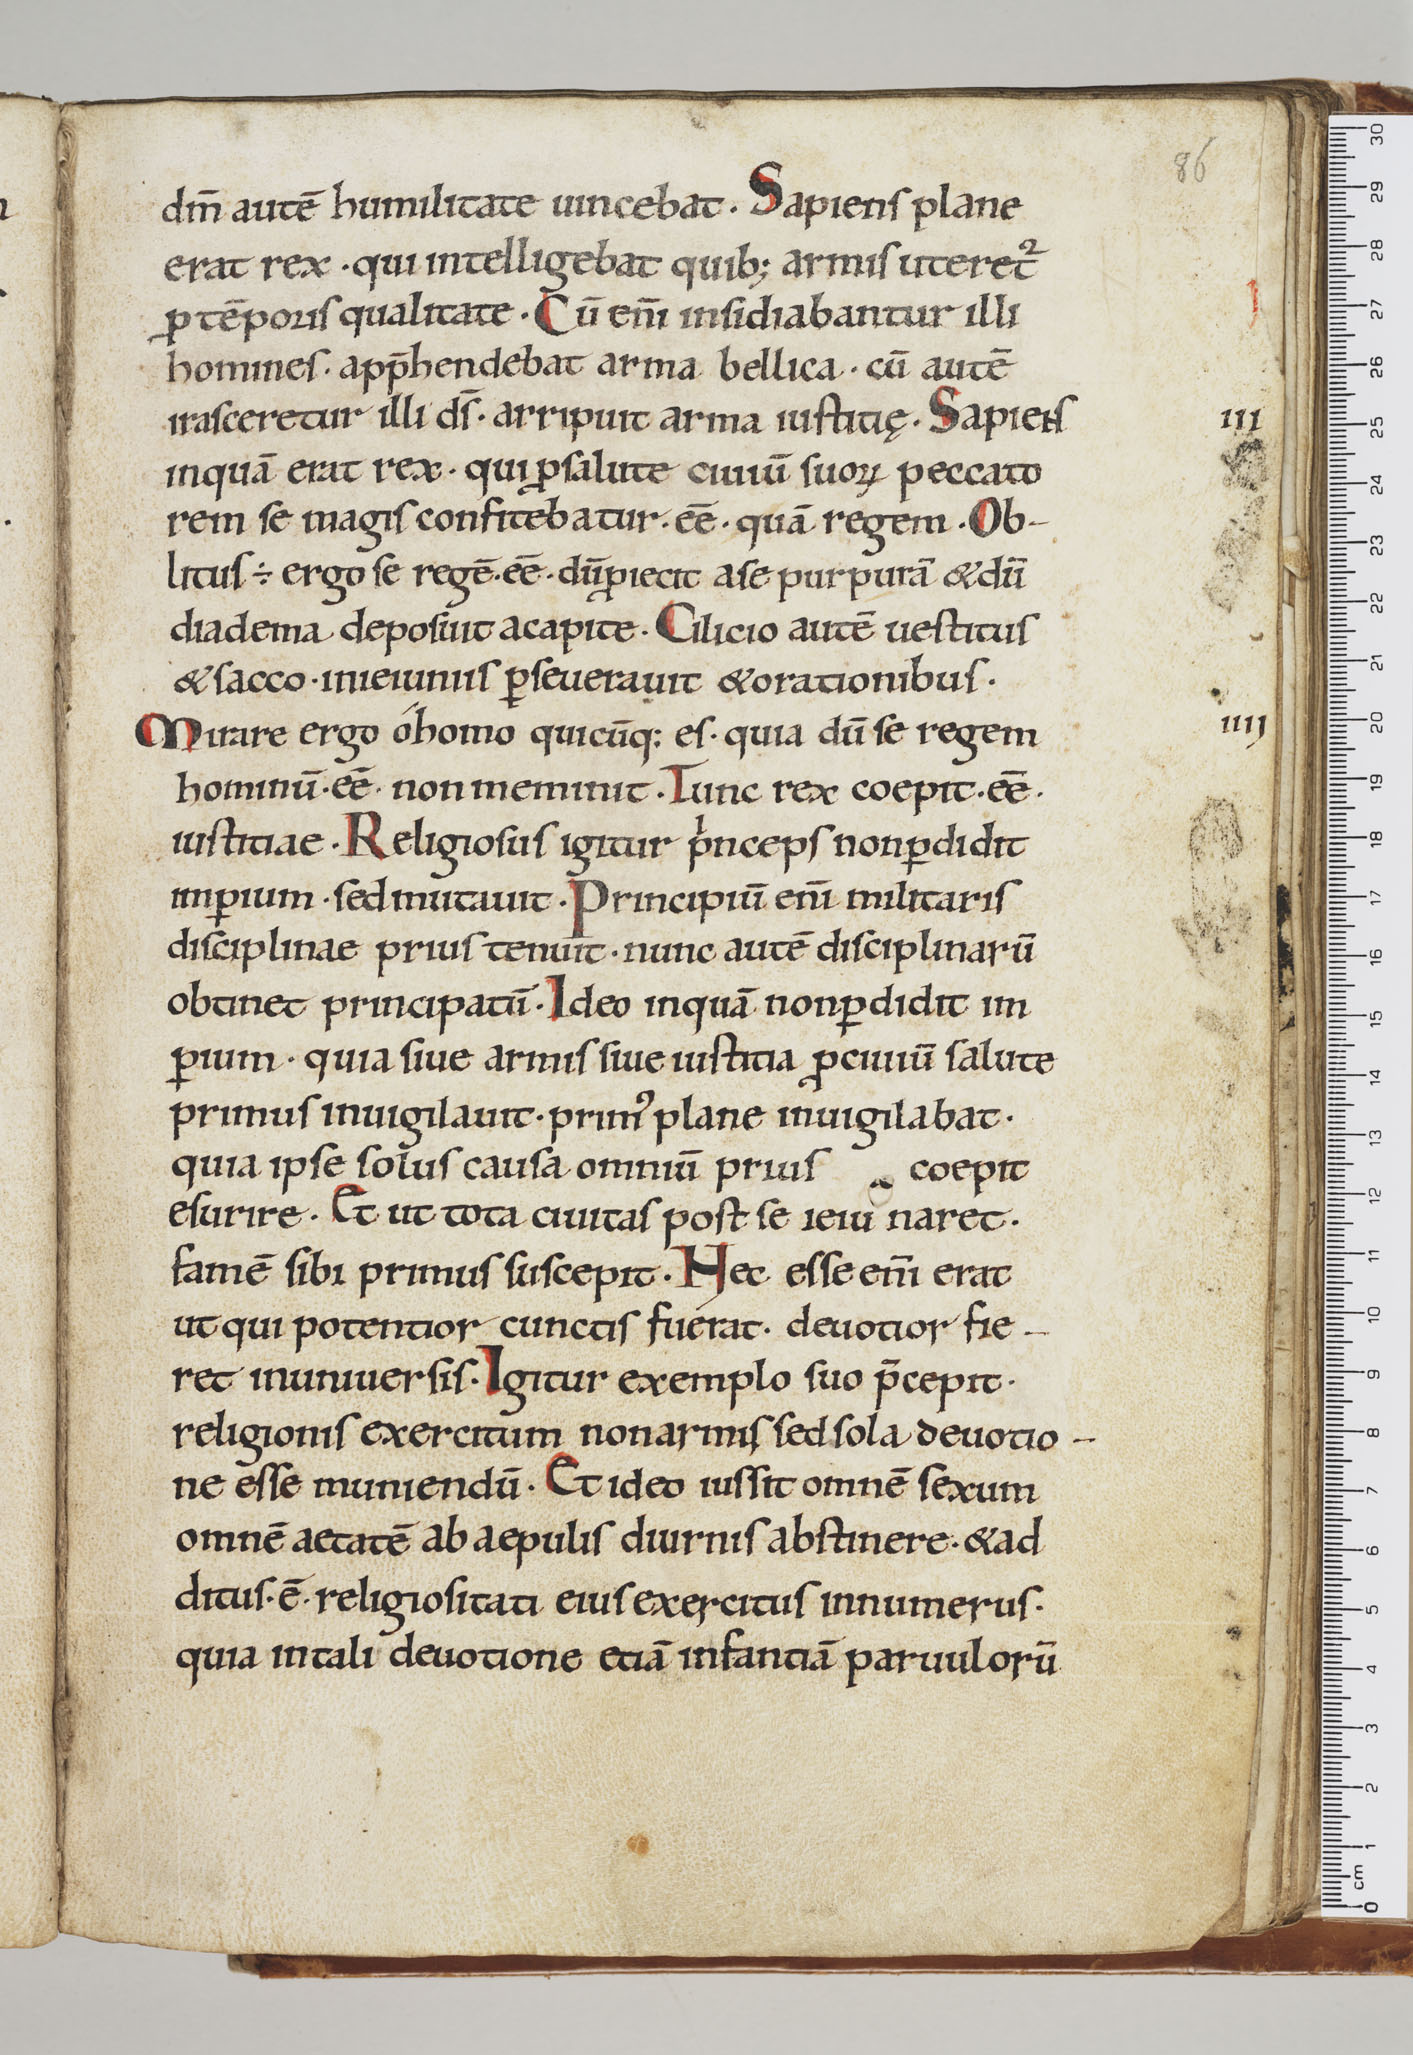 86
dm̄ autē humilitate uincebat. Sapiens plane
erat rex. qui intelligebat quib; armis uteret᷑
ꝑ tēporis qualitate. Cū enī insidiabantur illi
homines. app̄hendebat arma bellica. cū autē
irasceretur illi ds̄. arripuit arma iustitię. Sapiens
III
inquā erat rex. qui ꝓ salute ciuiū suoꝝ peccato
rem se magis confitebatur. eē. quā regem. Ob-
litus ÷ ergo se regē. eē. dū ꝓiecit a se purpurā & dū
diadema deposuit a capite. Cilicio autē uestitus
& sacco. in ieiuniis ꝑseuerauit & orationibus.
Mirare ergo ó homo quicūq: es. quia dū se regem
IIIJ
hominū. eē. non meminit. Tunc rex coepit. eē.
iustitiae. Religiosus igitur pͥnceps non ꝑdidit
imꝑium. sed mutauit. Principiū enī militaris
disciplinae prius tenuit. nunc autē disciplinarū
obtinet principatū. Ideo inquā non ꝑdidit im
ꝑium. quia siue armis siue iustitia ꝓ ciuiū salute
primus inuigilauit. primꝰ plane inuigilabat.
quia ipse solus causa omniū prius coepit
esurire. Et ut tota ciuitas post se ieiu naret.
famē sibi primus suscepit. Hec esse enī erat
ut qui potentior cunctis fuerat. deuotior fie-
ret in uniuersis. Igitur exemplo suo p̄cepit.
religionis exercitum non armis sed sola deuotio-
ne esse muniendū. Et ideo iussit omnē sexum
omnē aetatē ab aepulis diurnis abstinere. & ad
ditus. ē. religiositati eius exercitus innumerus.
quia in tali deuotione etiā infantiā paruulorū